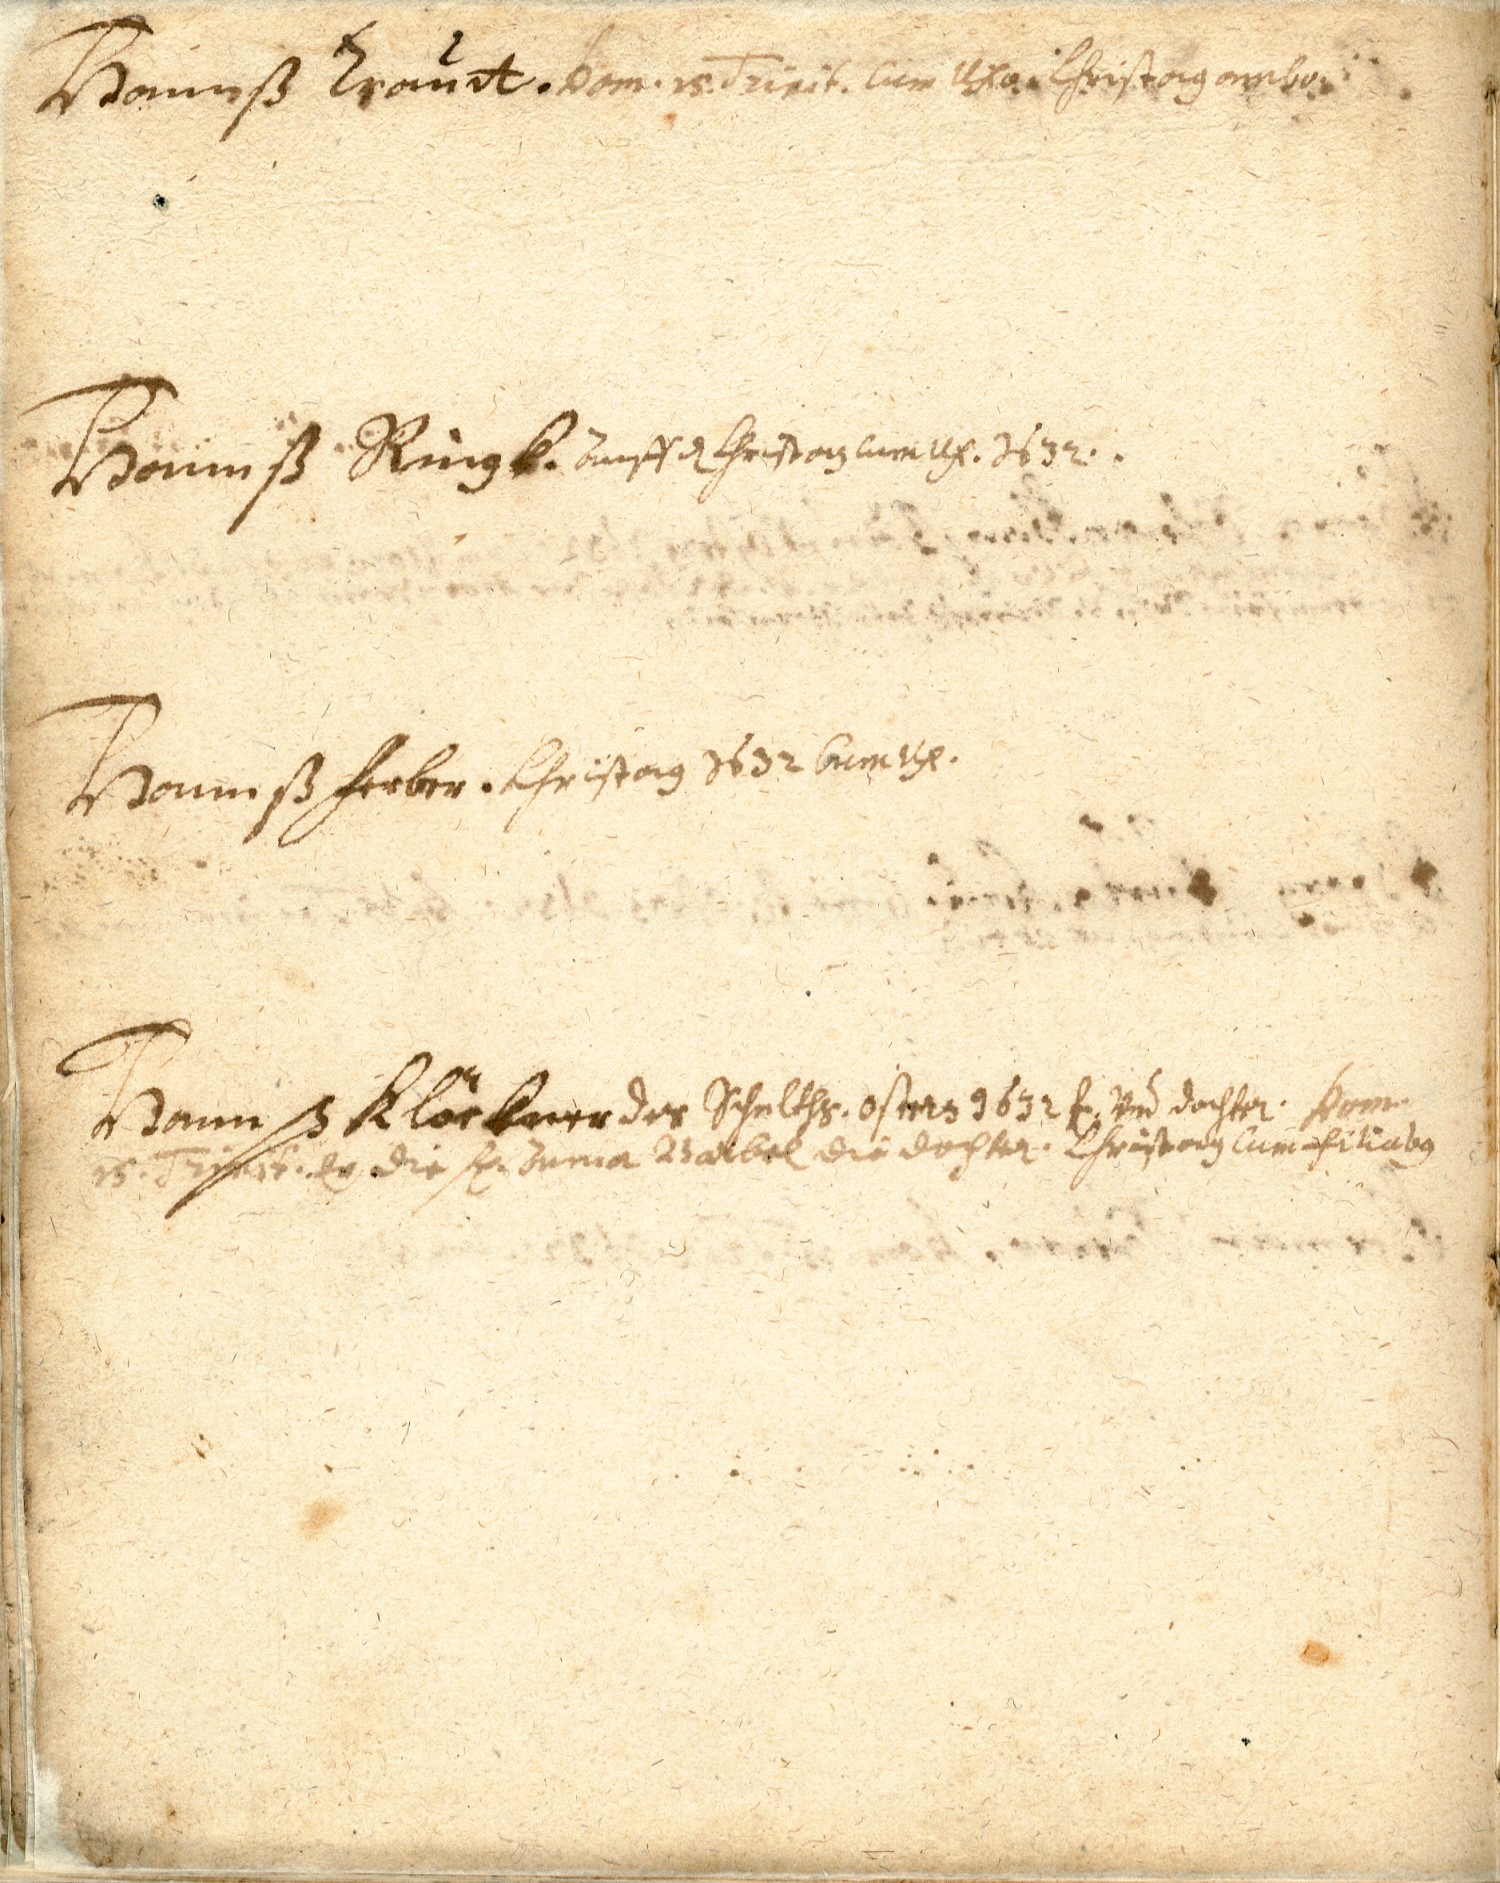 Hannß Traudt. Dom. 15. Trinit. cum Uxo. Christag ambo.
Hannß Ringk. Christag cum Ux. 1632.
Hannß ferber. Christag 1632 cum Ux.
Hannß Klöckner der Schulths. Ostern 1632 fr. Und dochter. Dom.
15. Trinit. die fr. Anna Barbel die dochter. Christag cum filiabus